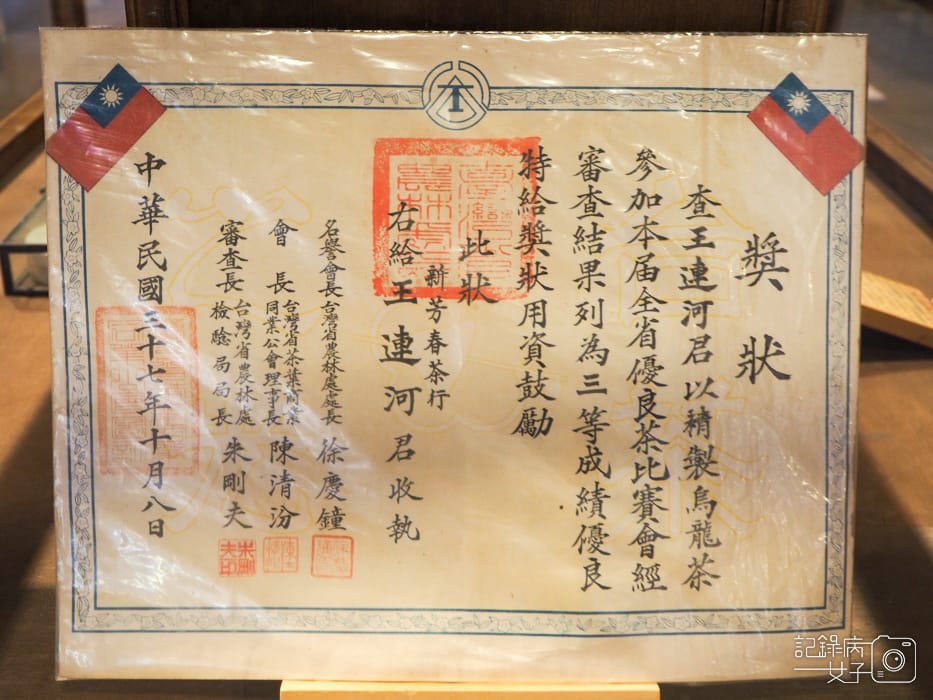 獎狀
查王連河君以精製烏龍茶
參加本届全省優良茶比賽會經
審查結果列為三等成績優良
特給獎狀用資鼓勵
此狀
新芳春茶行
右給王連河君收執
名譽會長台灣省農林處處長徐慶鐘
會長台灣省茶葉商業同業公會理事長陳清汾
審查長台灣省農林處檢驗局局長朱剛夫
中華民國三十七年十月八日
朱剛夫印
記錄病女子